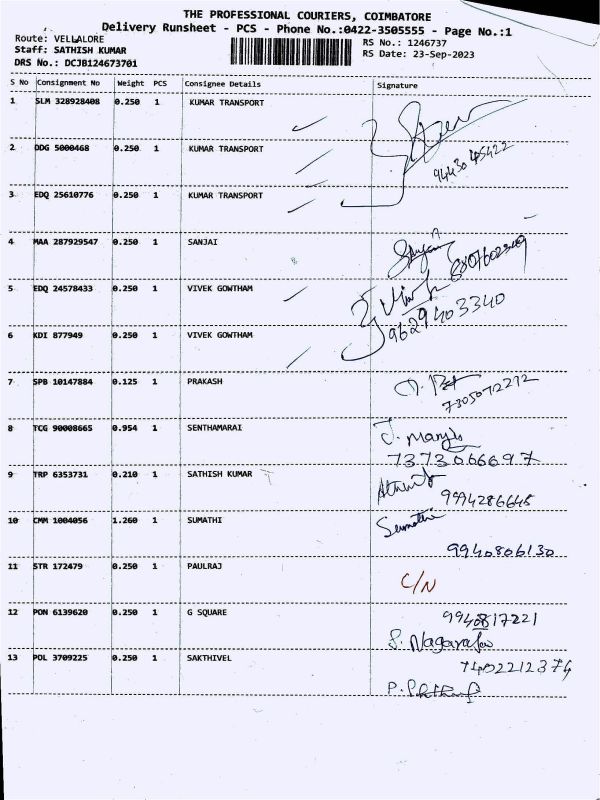 THE PROFESSIONAL COURIERS, COIMBATORE
Delivery Runsheet - PCS - Phone No.:0422-3505555 - Page No.:1
Route: VELLALORE
RS No.: 1246737
Staff: SATHISH KUMAR
RS Date: 23-Sep-2023
DRS No.: DCJB124673701
S No Consignment No Weight PCS Consignee Details Signature
1 SLM 328928408 0.250 1 KUMAR TRANSPORT
2 DDG 5000468 0.250 1 KUMAR TRANSPORT
94430 45422
3 EDQ 25610776 0.250 1 KUMAR TRANSPORT
4 MAA 287929547 0.250 1 SANJAI
5 EDQ 24578433 0.250 1 VIVEK GOWTHAM
9629403340
6 KDI 877949 0.250 1 VIVEK GOWTHAM
7 SPB 10147884 0.125 1 PRAKASH
7305072272
8 TCG 90008665 0.954 1 SENTHAMARAI
7373066697
9 TRP 6353731 0.210 1 SATHISH KUMAR
9994286645
10 CMM 1004056 1.260 1 SUMATHI Sumathi
9940806130
11 STR 172479 0.250 1 PAULRAJ C/N
12 PON 6139620 0.250 1 G SQUARE 9940817221
13 POL 3709225 0.250 1 SAKTHIVEL 7402212374